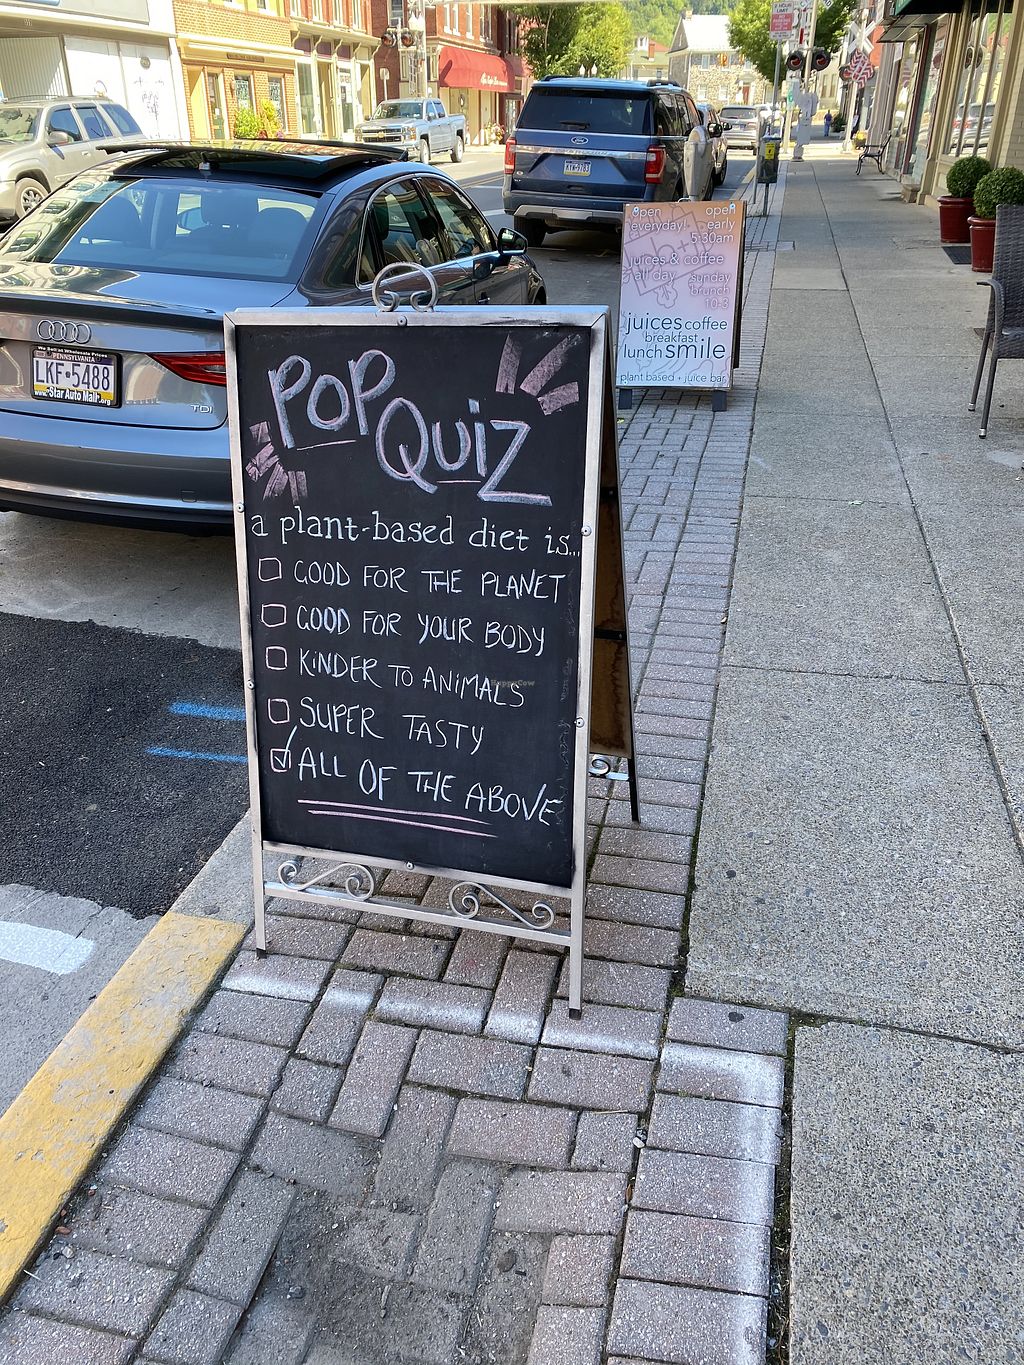 POP
QUIZ
a plant-based diet is...
GOOD FOR THE PLANET
GOOD FOR YOUR BODY
KINDER TO ANIMALS
SUPER TASTY
ALL OF THE ABOVE
open everyday!
open early 5:30am
juices & coffee all day
sunday brunch 10-3
juices coffee
breakfast
lunch smile
plant based + juice bar
We Sell at Wholesale Prices
PENNSYLVANIA
LKF•5488
www.Star Auto Mall.org
TDI
HappyCow